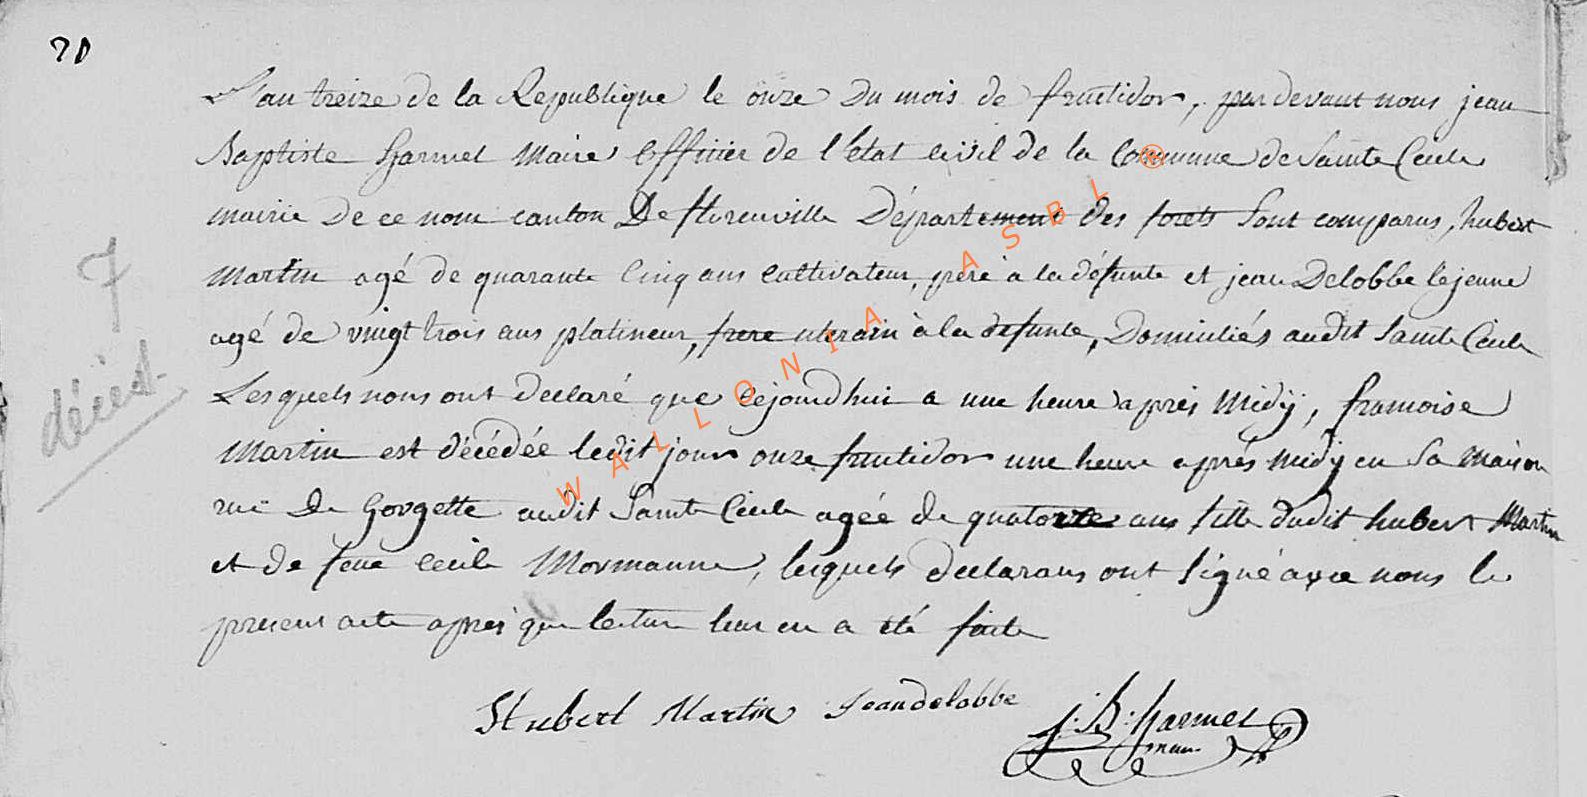 20
L'an treize de la Republique le onze du mois de fructidor, par devant nous jean
Baptiste harmel Maire officier de l'état civil de la Commune de Sainte Cecile
mairie de ce nom canton De florenville Département des forets Sont comparus, hubert
Martin agé de quarante Cinq ans cultivateur, père a la défunte et jean Delobbe le jeune
agé de vingt trois ans platineur, frere uterain à la defunte, Domiciliés audit Sainte Cecile
Lesquels nous ont declaré que cejourdhui a une heure après Midÿ, francoise
Martin est décédée ledit jour onze fructidor une heure après midy en Sa Maison
rue De Gorgette audit Sainte Cecile agée de quatorze ans fille dudit hubert Martin
et de feue Cecile Mormanne, lesquels declarans ont signé avec nous le
present acte après que lecture leur en a été faite
7
décès
Hubert Martin Jean delobbe J: B: harmel
maire
WALLONIA ASBL ®